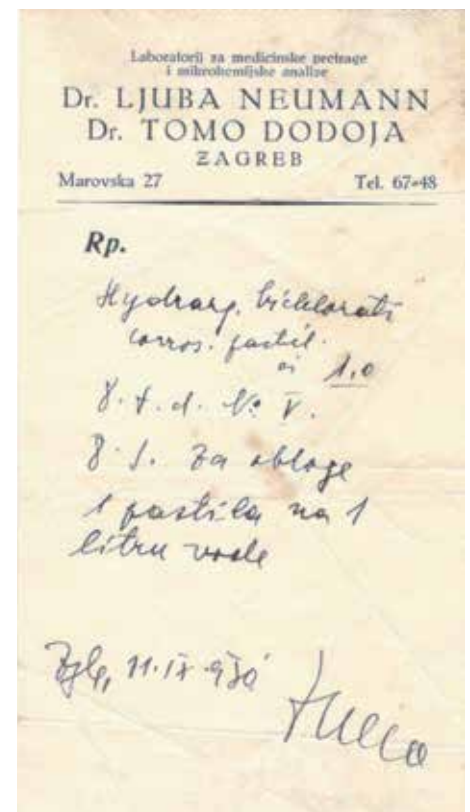 Laboratorij za medicinske pretrage
i mikrohemijske analize
Dr. LJUBA NEUMANN
Dr. TOMO DODOJA
ZAGREB
Marovska 27 Tel. 67-48
Rp.
Hydrarg. bichlorati
corros. pastil.
1,0
d. t. d. No V.
S. Za obloge
1 pastila na 1
litru vode
Zgb, 11. IX